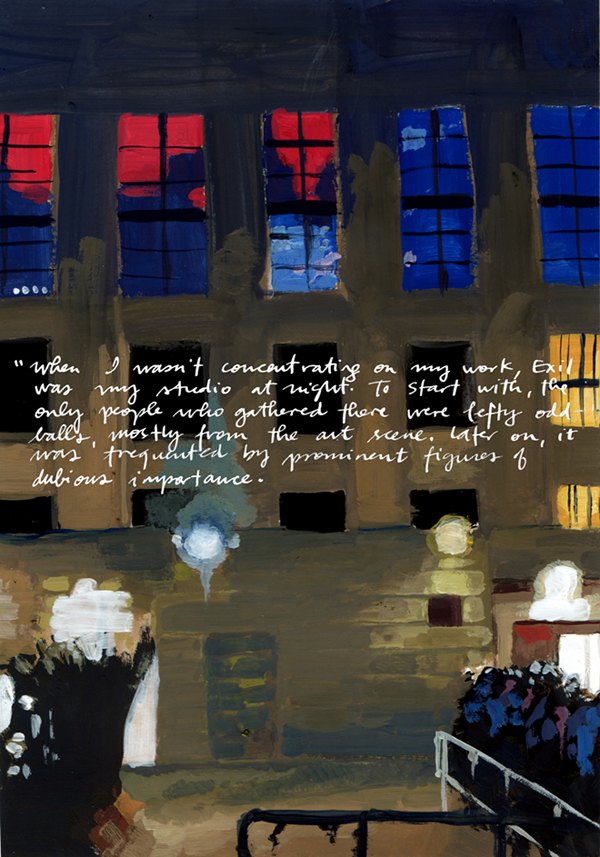 "When I wasn't concentrating on my work, Exil
was my studio at night. To start with, the
only people who gathered there were lefty odd-
balls, mostly from the art scene. Later on, it
was frequented by prominent figures of
dubious importance.